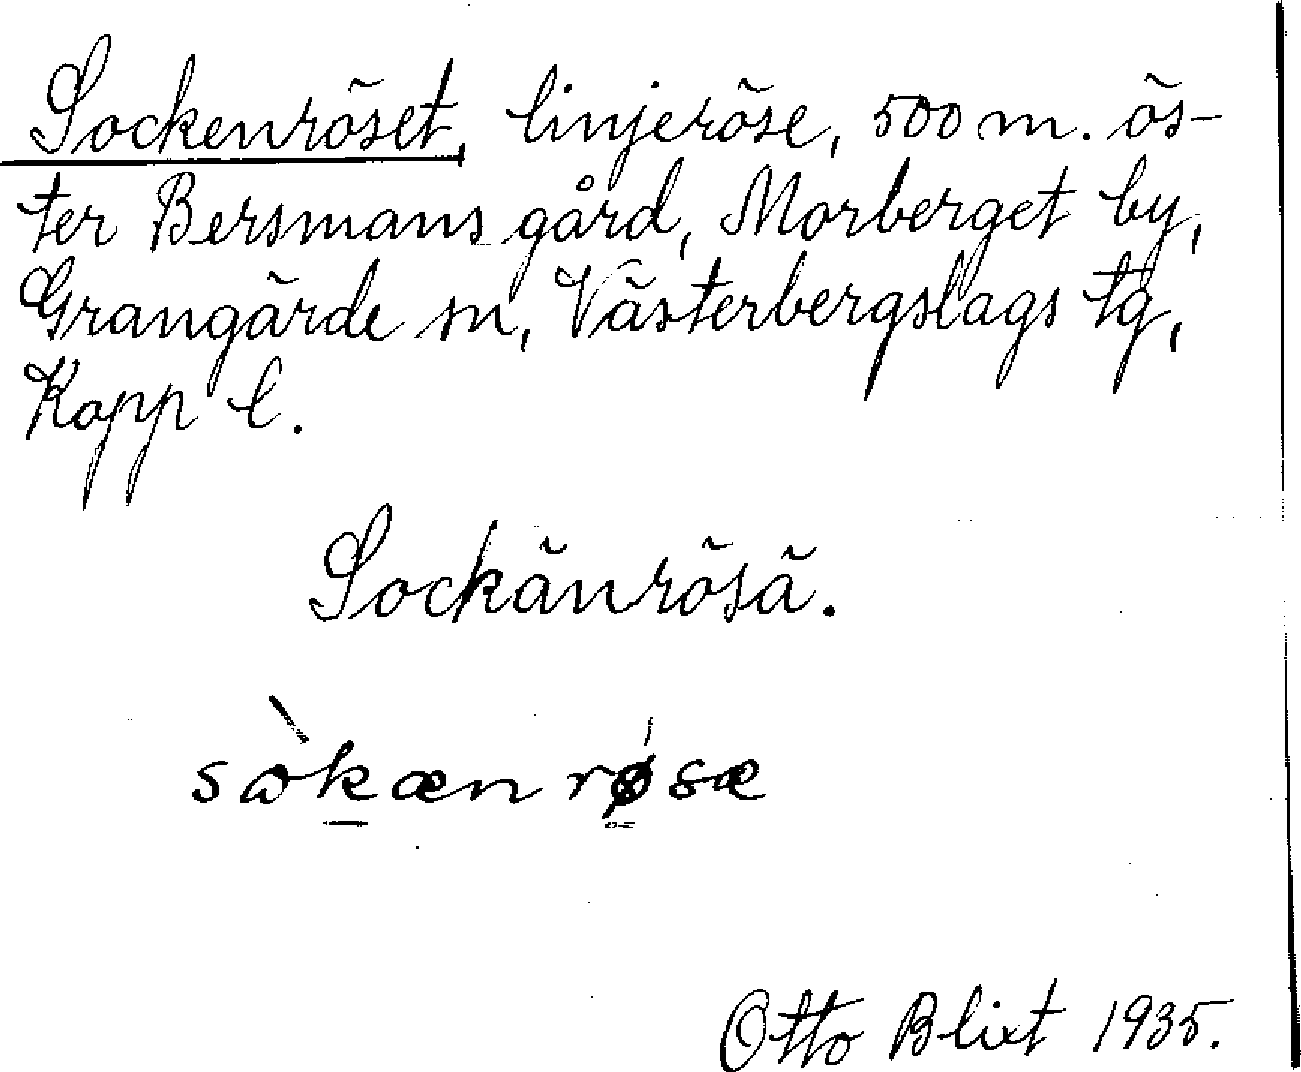 Sockenröset, linjeröse, 500 m. ös-
ter Bersmans gård, Morberget by,
Grangärde sn, Västerbergslags tg,
Kopp l.
Sockänrösä.
sὼkæn røsæ
Otto Blixt 1935.